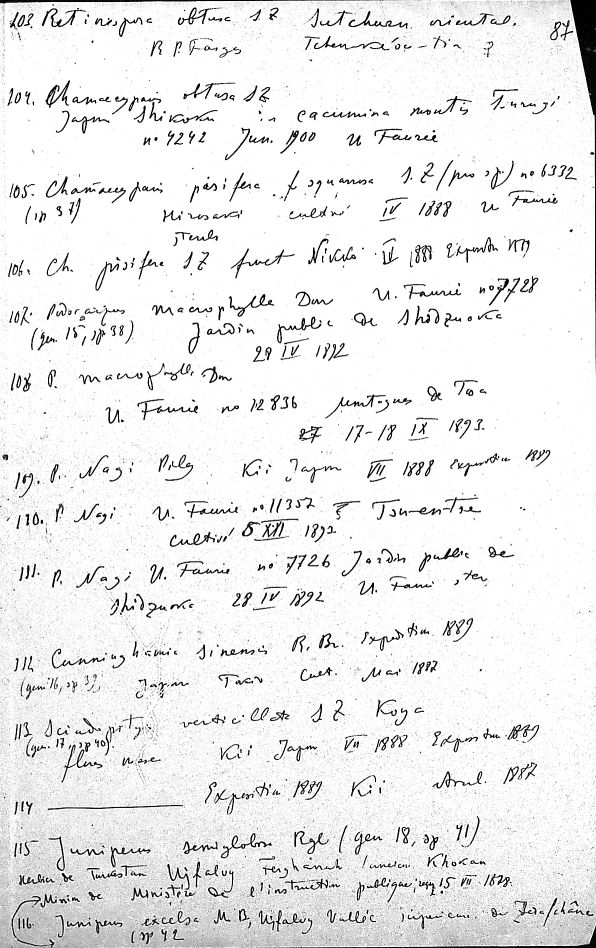 87
103. Retinospora obtusa S Z Sutchuen oriental.
R. P. Farges
104. Chamaecyparis obtusa S Z
Japon Shikoku in cacumina montis Tsurugi
no 4242 Jun. 1900 U Faurie
105. Chamaecyparis pisifera f squarrosa S. Z (pro sp) no 6332
(sp 37) Hirosaki cultivé IV 1888 U Faurie
sterile
106. Ch. pisifera S Z fruct Nikko IV 1888 Exposition 1889
107. Podocarpus macrophylla Don U. Faurie no 7728
(gen. 15, sp 38) Jardin public de Shidzuoka
28 IV 1892
108 P. macrophylla Don
U. Faurie no 12836 montagnes de Toa
17-18 IX 1893.
109. P. Nagi Pilg Kii Japon VII 1888 Exposition 1889
110. P Nagi U. Faurie no 11357
cultivé 5 XII 1893
111. P. Nagi U. Faurie no 7726 Jardin public de
Shidzuoka 28 IV 1892 U. Fauri ster
112 Cunninghamia sinensis R. Br. Exposition 1889
(gen 16, sp 39) Japon Cult. Mai 1887
113 Sciadopitys verticillata S Z Koya
(gen. 17, sp 40).
flores masc Kii Japon VII 1888 Exposition 1889
114 ———— Exposition 1889 Kii 1887
115 Juniperus semiglobosa Rgl (gen 18, sp 41)
Herbier de Turkestan Ujfalvy Ferghanah (ancien Khokan
Mission de Ministère de l'instruction publique, reçu 15 VII 1878.
116. Juniperus excelsa M B, Ujfalvy Vallée supérieure du Zerafchâne
(sp 42